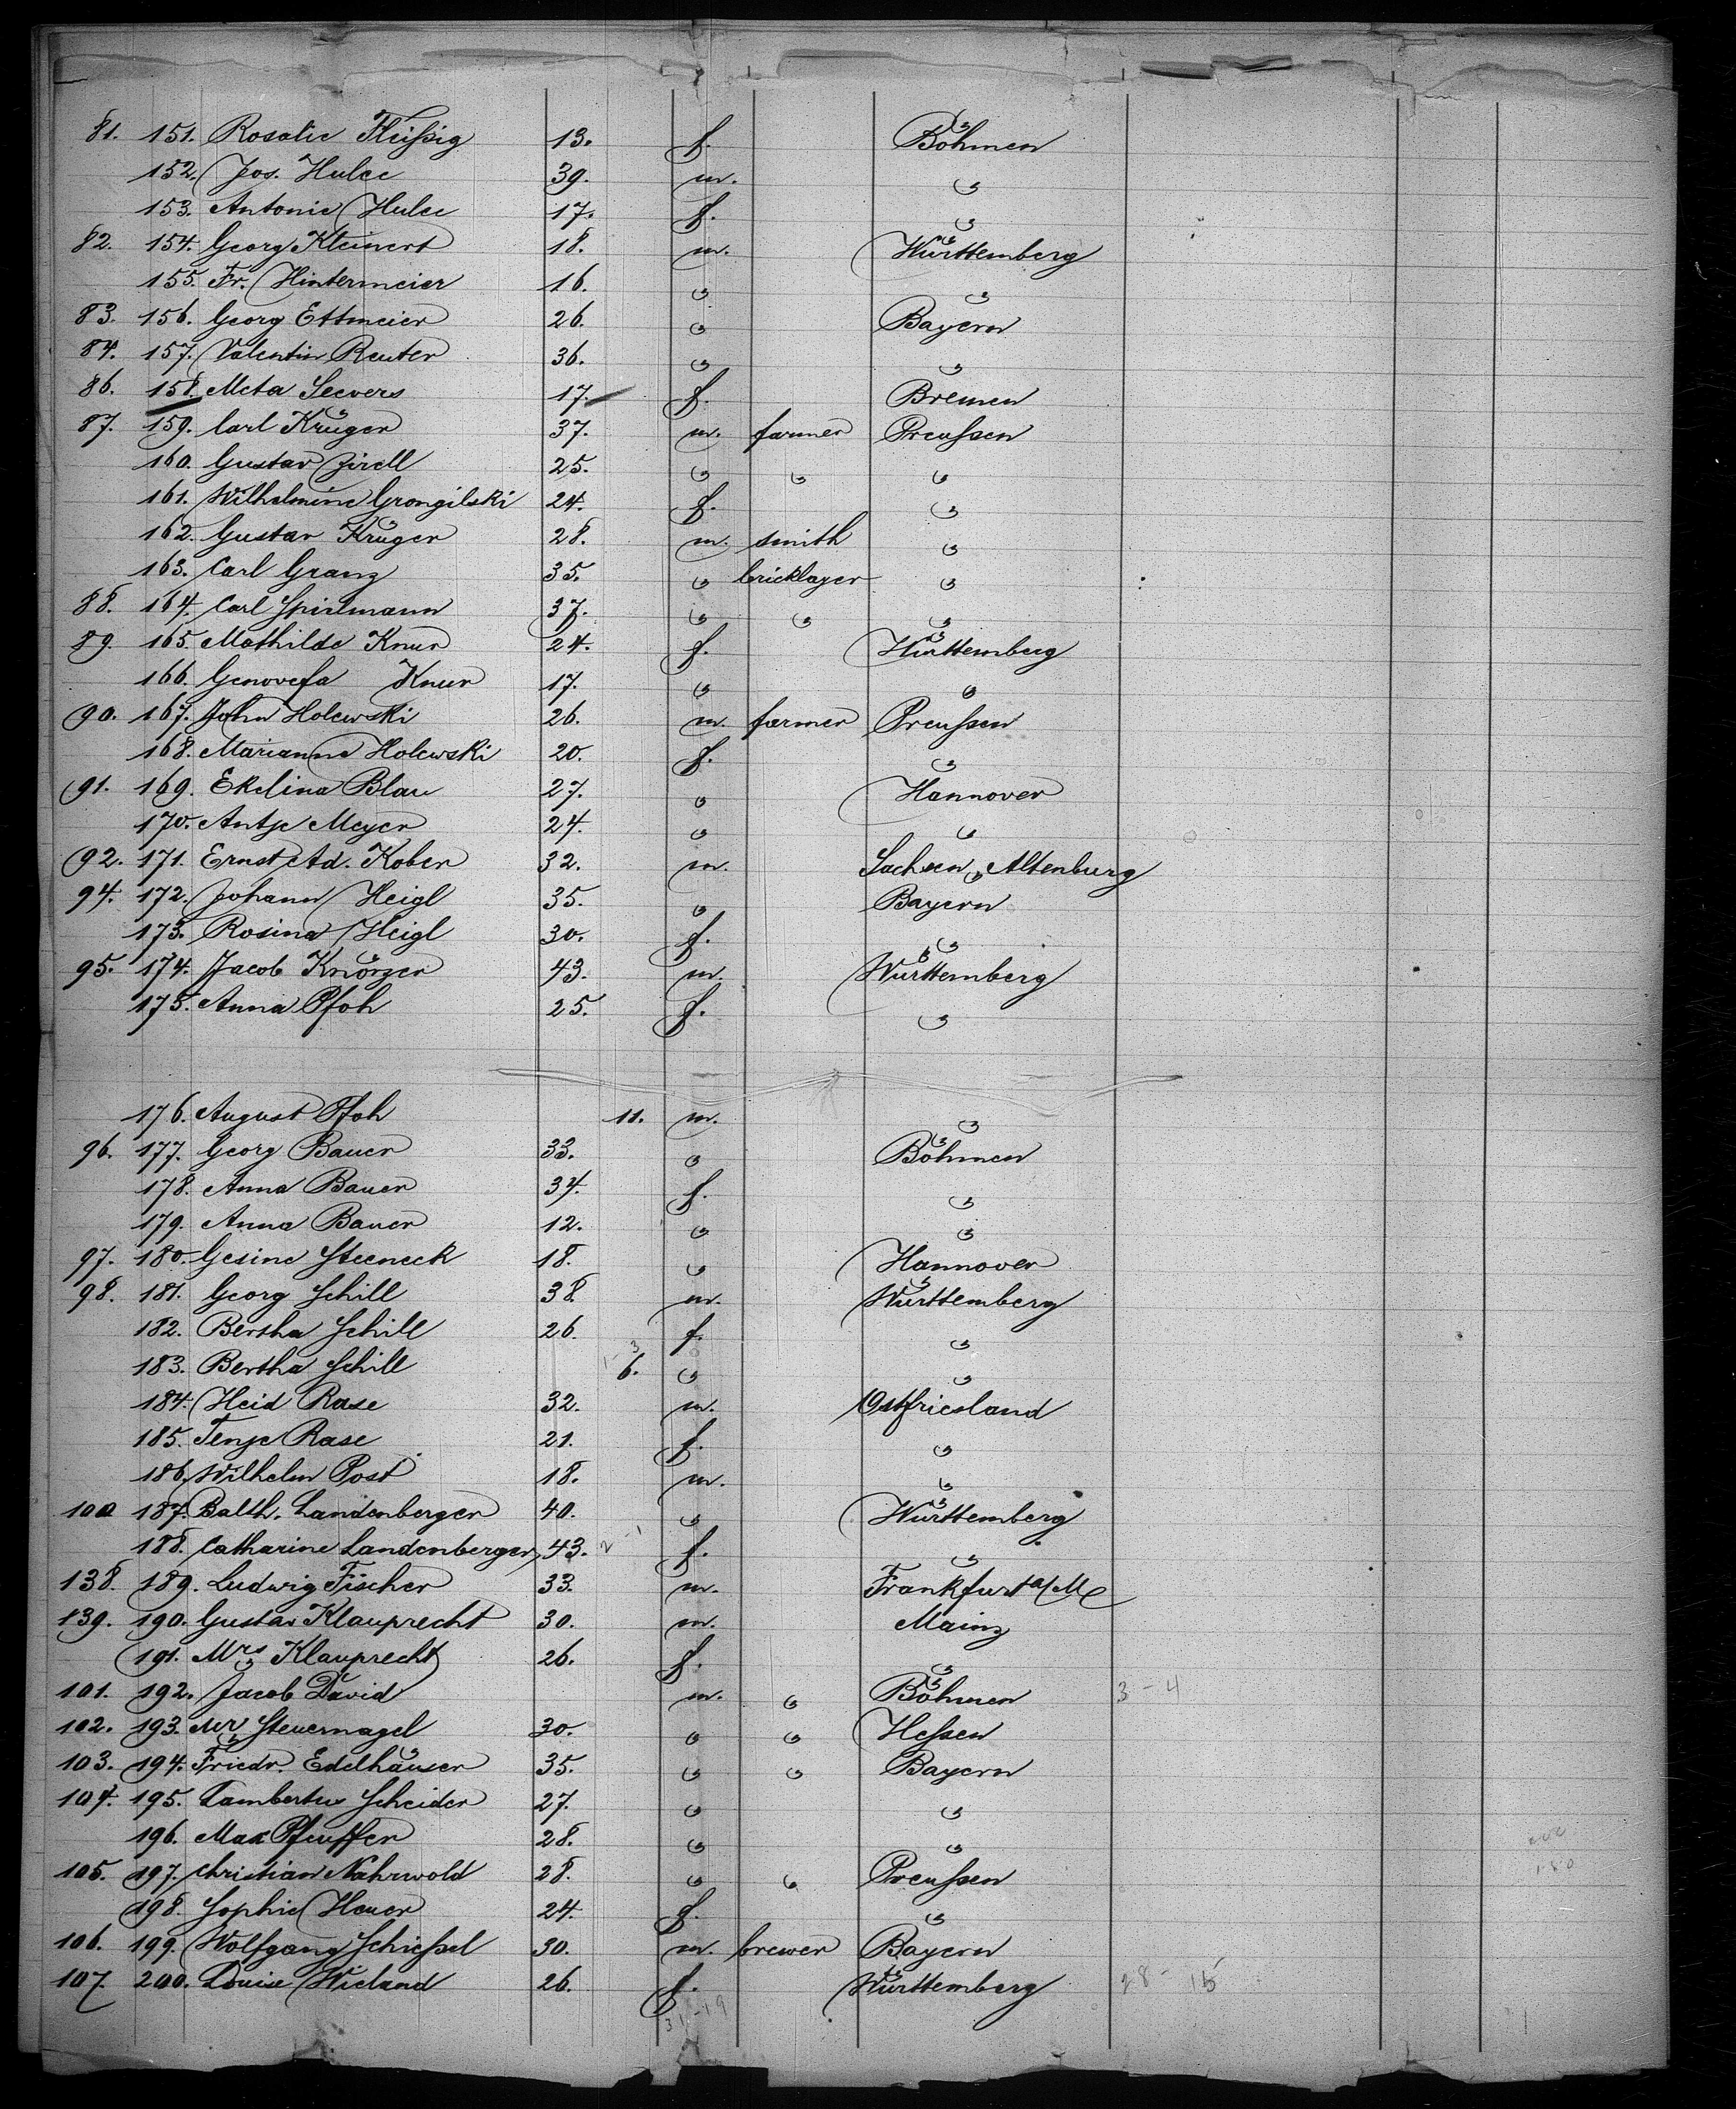 81. 151. Rosalie Fleißig 13. f. Böhmen
152. Jos. Hulec 39. m. "
153. Antonie Hulec 17. f. "
82. 154. Georg Kleinert 18. m. Württemberg
155. Fr. Hintermeier 16. " "
83. 156. Georg Ettmeier 26. " Bayern
84. 157. Valentin Reuter 36. " "
86. 158. Meta Seevers 17. f. Bremen
87. 159. Carl Krüger 37. m. farmer Preußen
160. Gustav Zirell 25. " " "
161. Wilhelmine Grongilski 24. f. "
162. Gustav Krüger 28. m. smith "
163. Carl Granz 35. " bricklayer "
88. 164. Carl Spielmann 37. " " "
89. 165. Mathilde Knur 24. f. Württemberg
166. Genovefa Knur 17. " "
90. 167. John Holewski 26. m. farmer Preußen
168. Marianne Holewski 20. f. "
91. 169. Ekelina Blau 27. " Hannover
170. Antje Meyer 24. " "
92. 171. Ernst Ad. Kober 32. m. Sachsen Altenburg
94. 172. Johann Heigl 35. " Bayern
173. Rosina Heigl 30. f. "
95. 174. Jacob Knörzer 43. m. Württemberg
175. Anna Pfoh 25. f. "
176. August Pfoh 11. m. "
96. 177. Georg Bauer 33. " Böhmen
178. Anna Bauer 34. f. "
179. Anna Bauer 12. " "
97. 180. Gesine Steeneck 18. " Hannover
98. 181. Georg Schill 38. m. Württemberg
182. Bertha Schill 26. f. "
183. Bertha Schill 6. " "
184. Heid Rase 32. m. Ostfriesland
185. Tenje Rase 21. f. "
186. Wilhelm Post 18. m. "
100 187. Balth. Landenberger 40. " Württemberg
188. Catharine Landenberger 43. f. "
138. 189. Ludwig Fischer 33. m. Frankfurt a/M
139. 190. Gustav Klauprecht 30. m. Mainz
191. Mrs Klauprecht 26. f. "
101. 192. Jacob David m. " Böhmen 3-4
102. 193. Mr Steuernagel 30. " " Hessen
103. 194. Friedr. Edelhäuser 35. " " Bayern
104. 195. Lambertus Scheider 27. " "
196. Max Pfeuffer 28. " "
105. 197. Christian Nahrwold 28. " " Preußen
198. Sophie Heuer 24. f. "
106. 199. Wolfgang Schießel 30. m. brewer Bayern
107. 200. Louise Wieland 26. f. Württemberg 28- 15
31-19